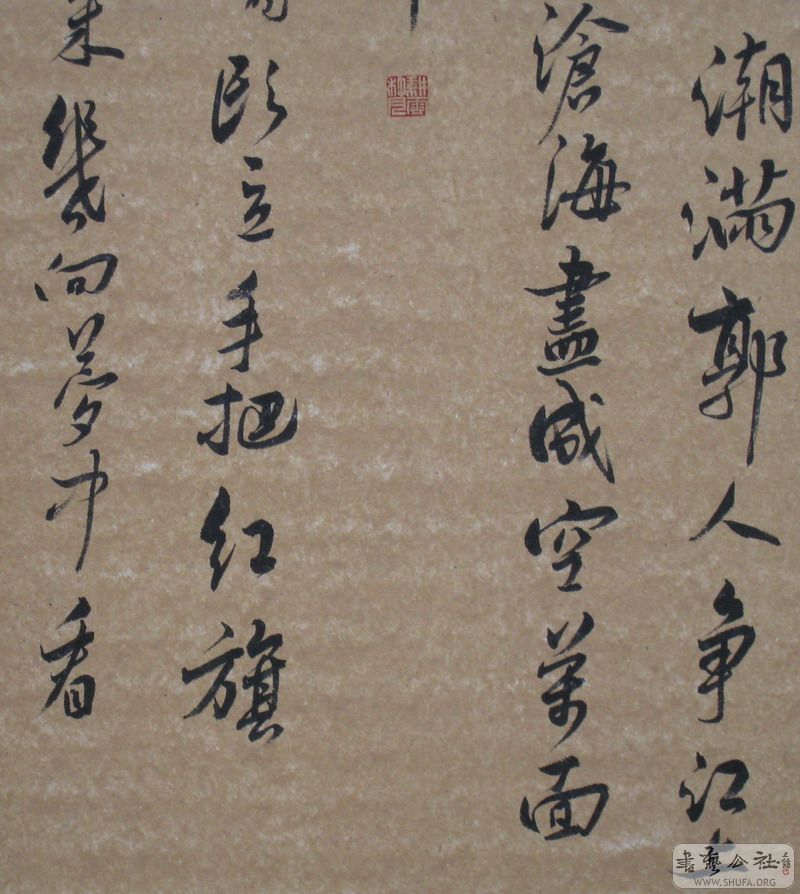 潮滿郭人争江
滄海盡成空萬面
頭立手把红旗
来幾向夢中看
書藝公社
WWW.SHUFA.ORG